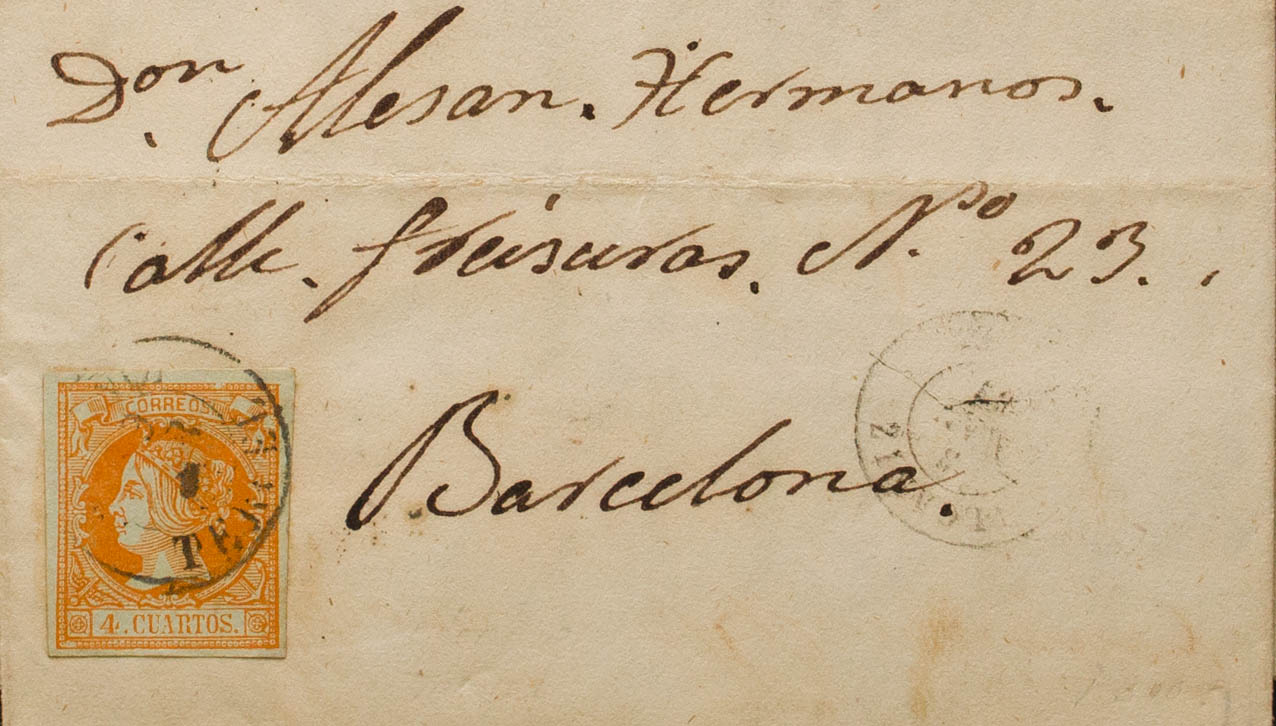 Don. Alesan. Hermanos.
Calle. freisuras. Nº. 23.
Barcelona.
CORREOS
TERUEL
4. CUARTOS.
21